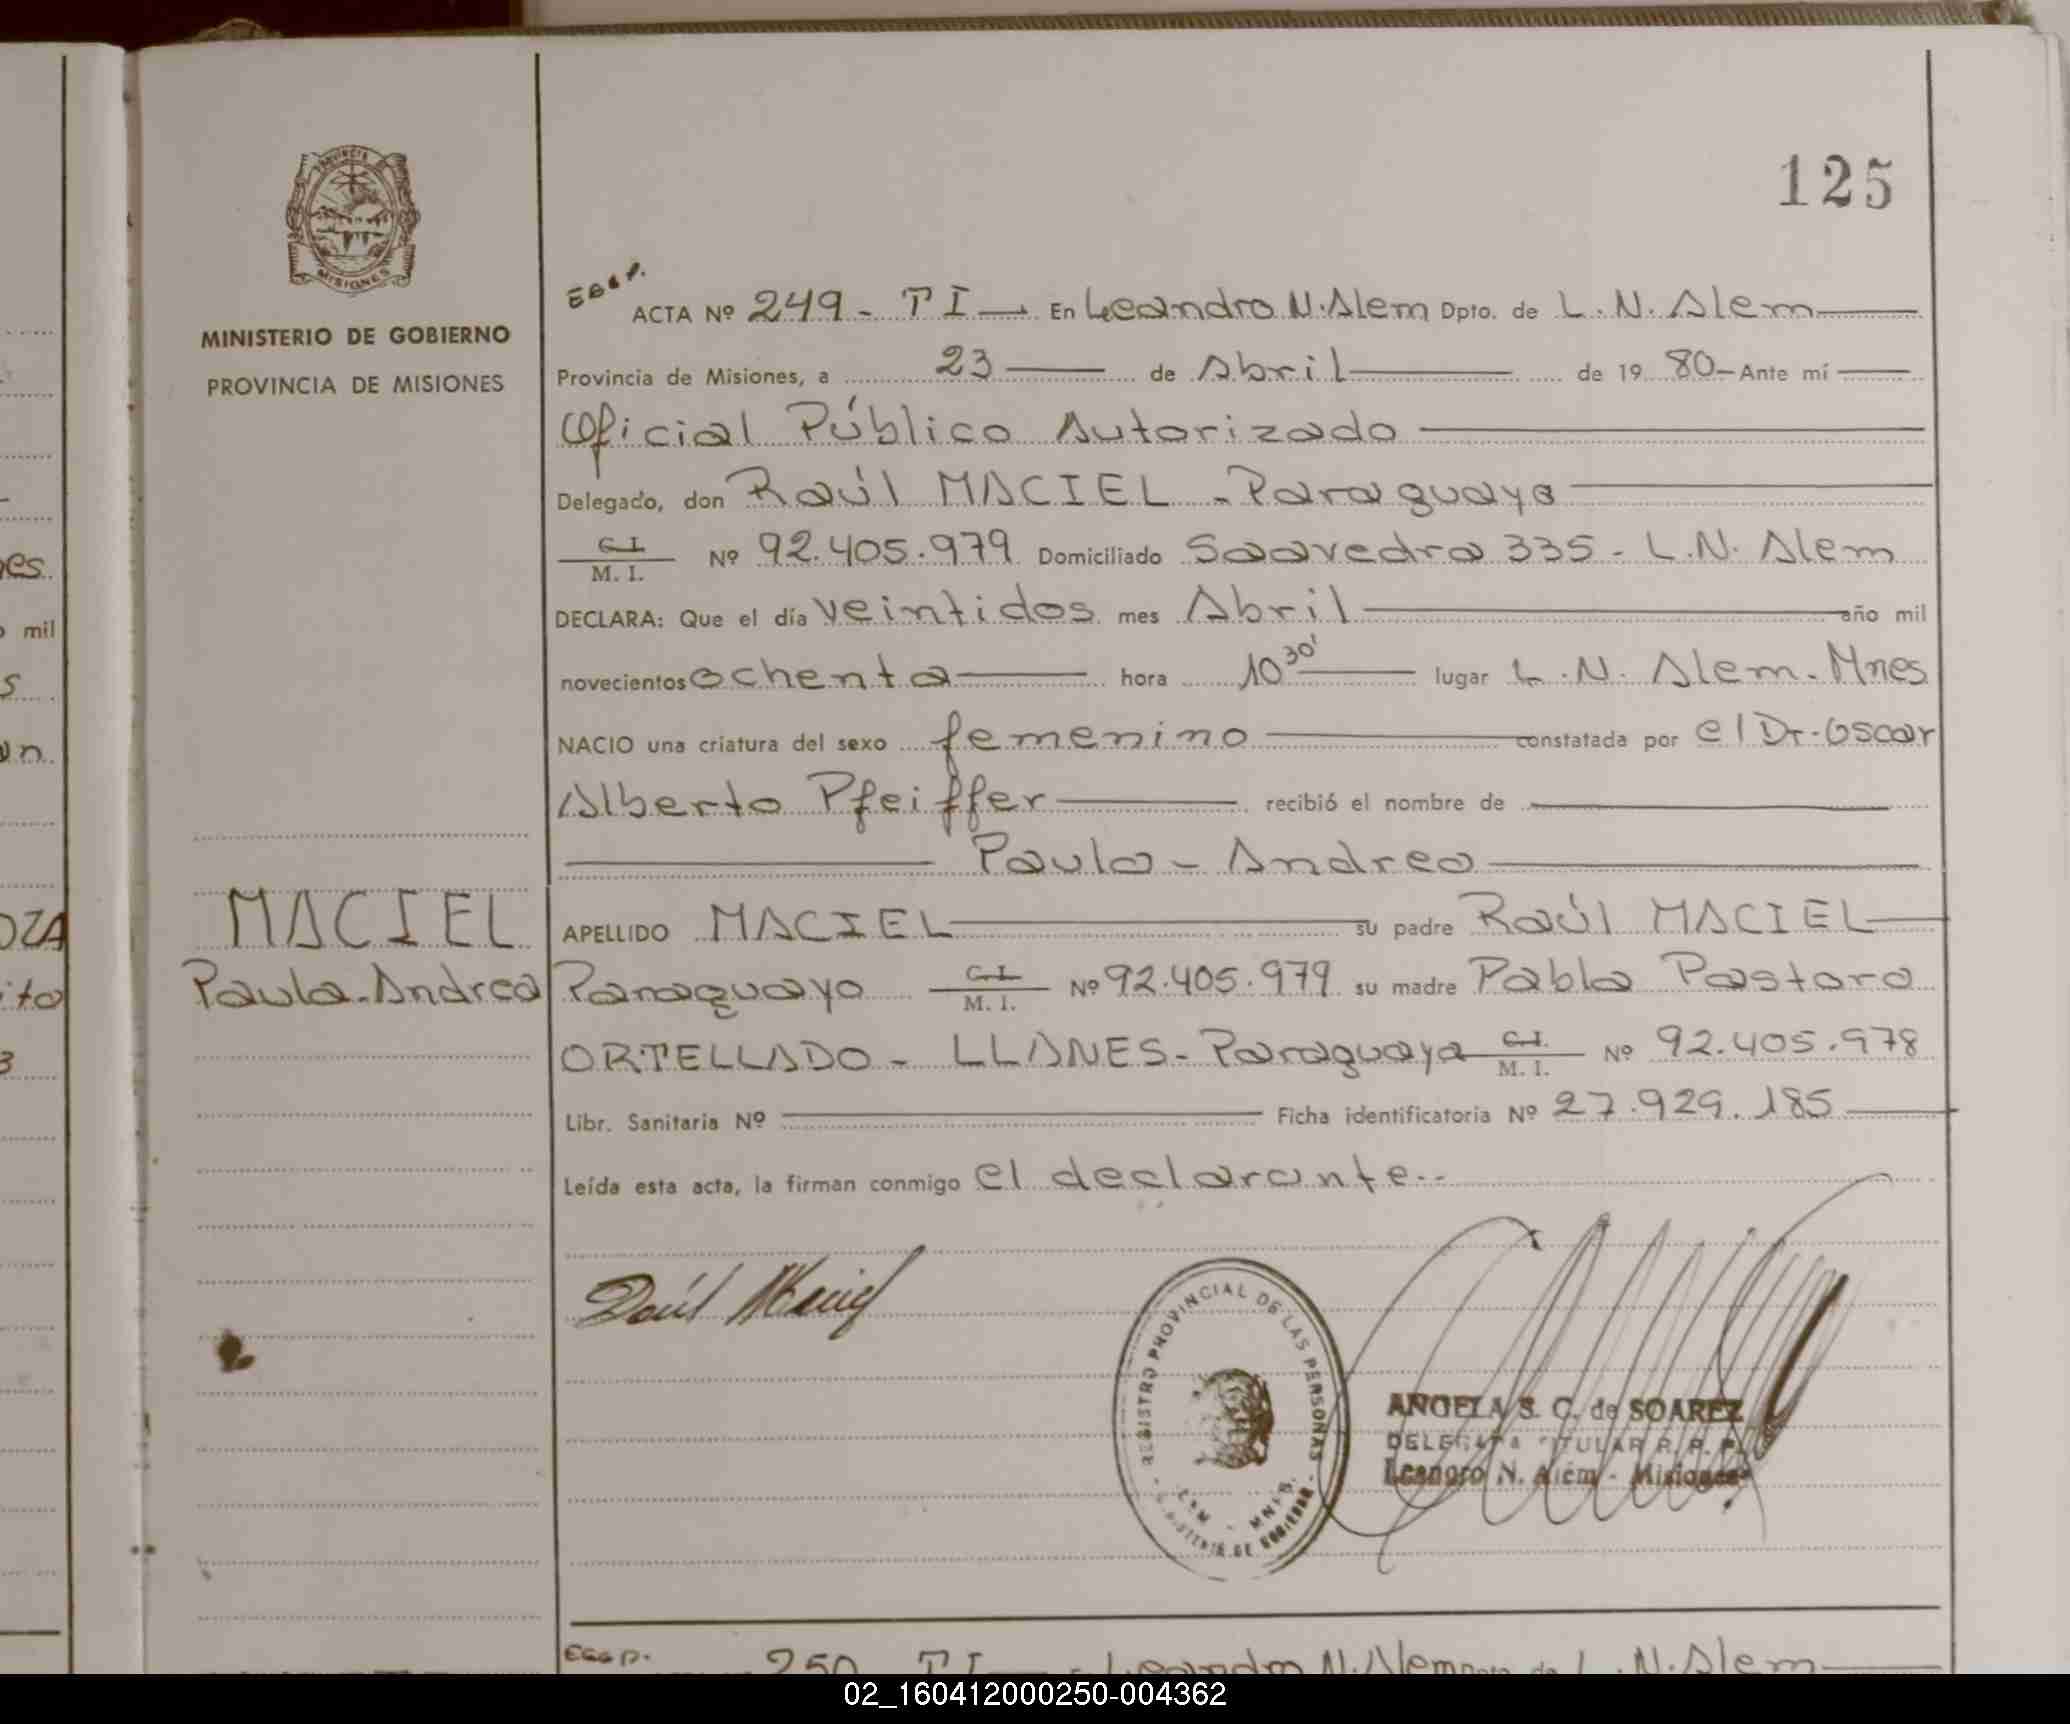 125
PROVINCIA
MISIONES
MINISTERIO DE GOBIERNO
PROVINCIA DE MISIONES
ACTA Nº 249 - T I — En Leandro N. Alem Dpto. de L. N. Alem
Provincia de Misiones, a 23 de Abril de 19 80 - Ante mí
Oficial Público Autorizado
Delegado, don Raúl MACIEL - Paraguayo
C.I. M. I. Nº 92.405.979 Domiciliado Saavedra 335 - L.N. Alem
DECLARA: Que el día veintidos mes Abril año mil
novecientos ochenta hora 10 30' lugar L. N. Alem - Mnes
NACIO una criatura del sexo femenino constatada por el Dr. Oscar
Alberto Pfeiffer recibió el nombre de
Paula - Andrea
MACIEL
Paula - Andrea
APELLIDO MACIEL su padre Raúl MACIEL
Paraguayo C.I. M. I. Nº 92.405.979 su madre Pabla Pastora
ORTELLADO - LLANES - Paraguaya C.I. M. I. Nº 92.405.978
Libr. Sanitaria Nº Ficha identificatoria Nº 27.929.185
Leída esta acta, la firman conmigo el declarante.-
Raúl Maciel
REGISTRO PROVINCIAL DE LAS PERSONAS
ANGELA S. C. de SOAREZ
DELEGADA TITULAR R. P. P.
Leandro N. Alem - Misiones
250 T I — Leandro N. Alem L. N. Alem
OZA
ito
mil
02_160412000250-004362